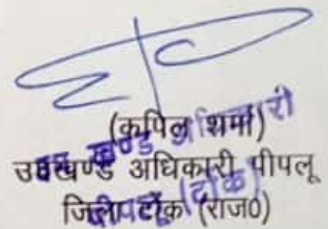 (कपिल शर्मा)
उपखण्ड अधिकारी पीपलू
जिला टोंक (राज0)
उप खण्ड अधिकारी
पीपलू (टोंक)